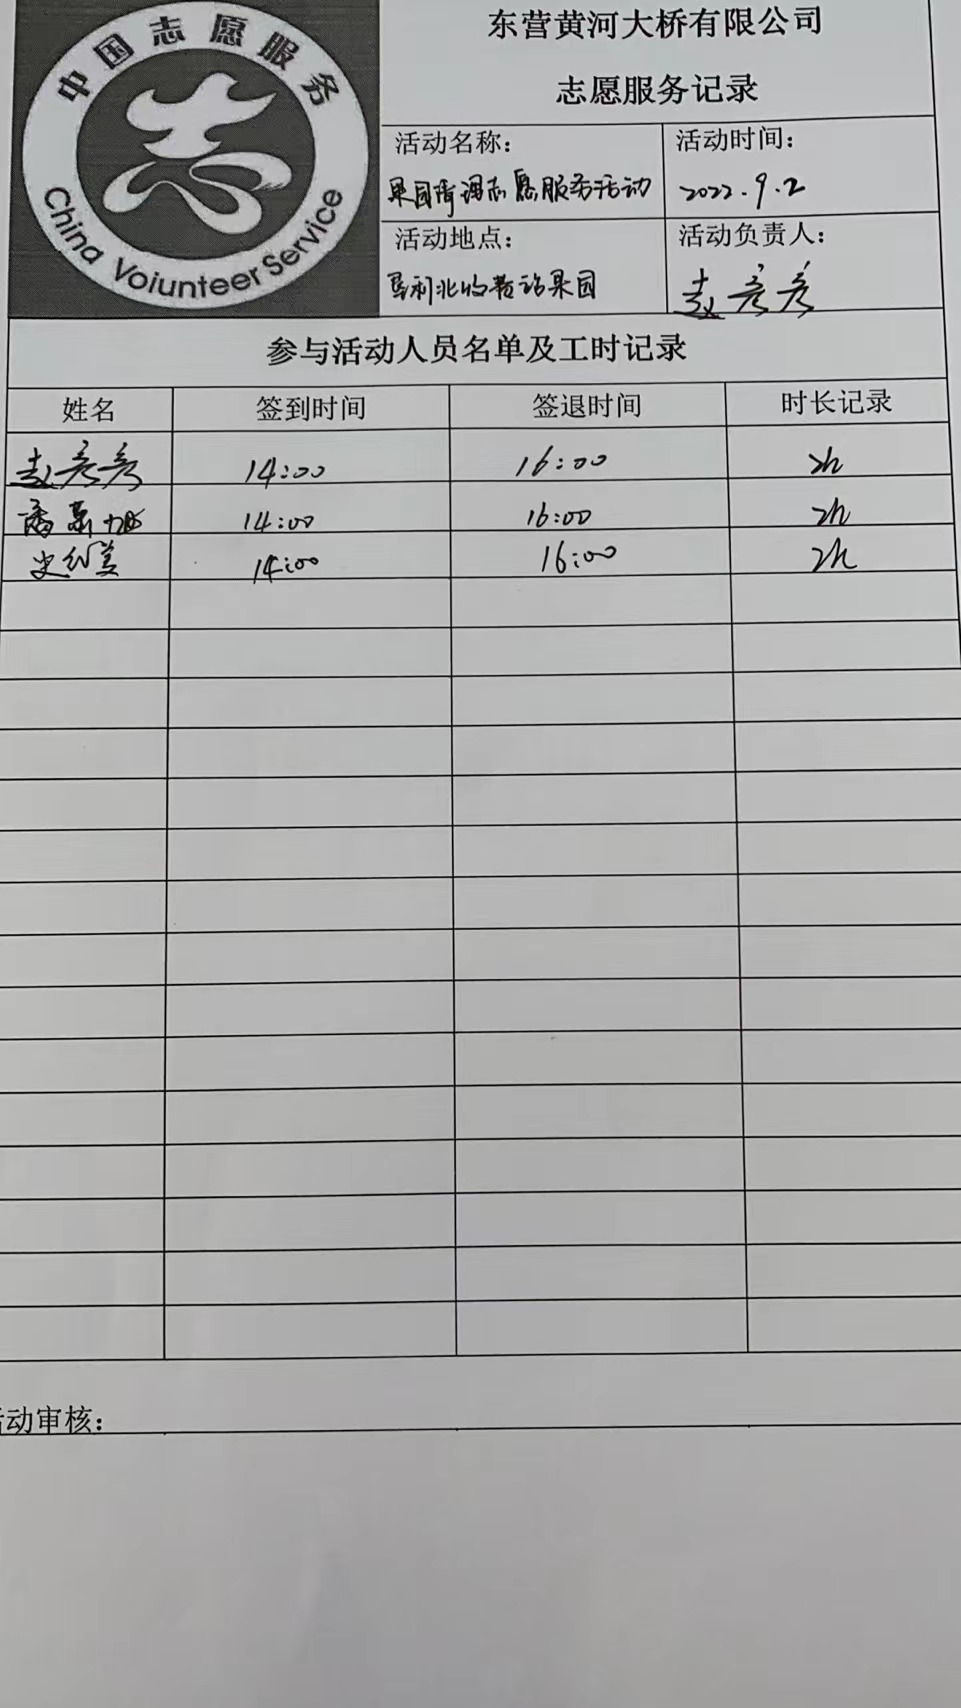 中国志愿服务
China Voiunteer Service
东营黄河大桥有限公司
志愿服务记录
活动名称：
果园清理志愿服务活动
活动时间：
2022.9.2
活动地点：
垦利北收费站果园
活动负责人：
赵彦彦
参与活动人员名单及工时记录
姓名 签到时间 签退时间 时长记录
赵彦彦 14:00 16:00 2h
潘 14:00 16:00 2h
史红美 14:00 16:00 2h
动审核：